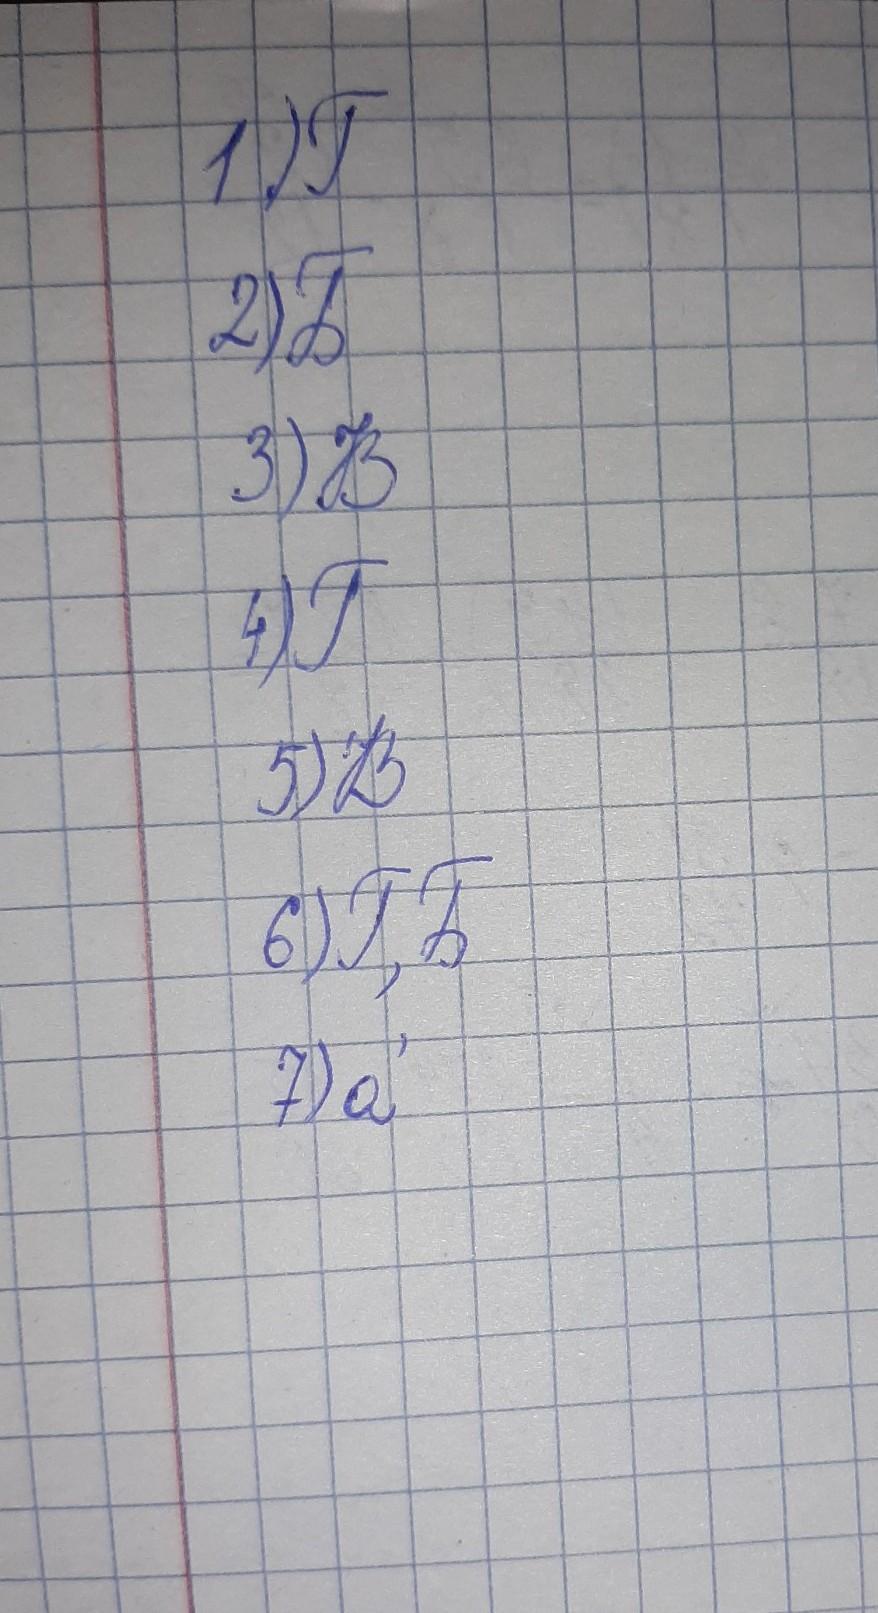 1) Г
2) Б
3) В
4) Г
5) В
6) Г, Б
7) а